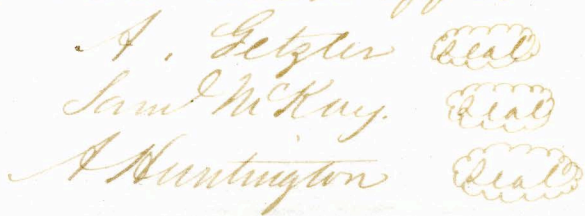 A. Getzler Seal
Saml McKay. Seal
A Huntington Seal